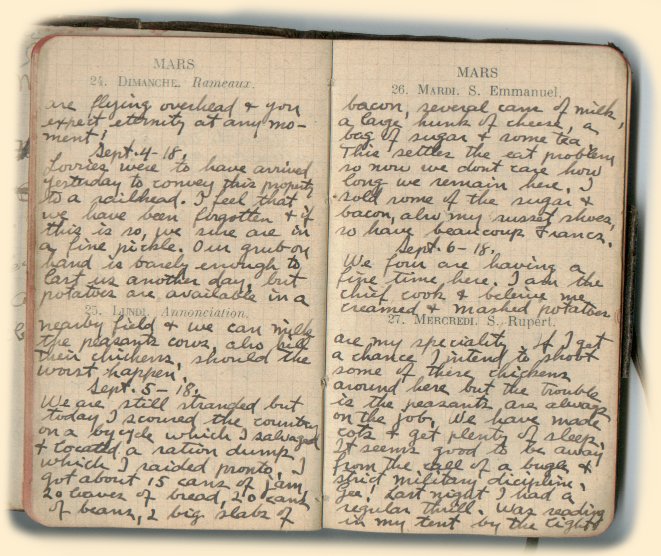 MARS
24. DIMANCHE. Rameaux.
are flying overhead & you
expect eternity at any mo-
ment!
Sept. 4-18.
Lorries were to have arrived
yesterday to convey this property
to a railhead. I feel that
we have been forgotten & if
this is so, we sure are in
a fine pickle. Our grub on
hand is barely enough to
last us another day, but
potatoes are available in a
25. LUNDI. Annonciation.
nearby field & we can milk
the peasants cows, also kill
their chickens, should the
worst happen.
Sept. 5-18.
We are still stranded but
today I scoured the country
on a bycycle which I salvaged
& located a ration dump,
which I raided pronto. I
got about 15 cans of jam,
20 loaves of bread, 20 cans
of beans, 2 big slabs of
MARS
26. MARDI. S. Emmanuel.
bacon, several cans of milk,
a large hunk of cheese, a
bag of sugar & some tea.
This settles the eat problem
so now we dont care how
long we remain here. I
sold some of the sugar &
bacon, also my russet shoes,
so have beaucoup francs.
Sept. 6-18.
We four are having a
fine time here. I am the
chief cook & beleive me
creamed & mashed potatoes
27. MERCREDI. S. Rupert.
are my speciality. If I get
a chance I intend to shoot
some of these chickens
around here but the trouble
is the peasants are always
on the job. We have made
cots & get plenty of sleep.
It seems good to be away
from the call of a bugle &
strict military dicipline.
Gee, last night I had a
regular thrill. Was reading
in my tent by the light